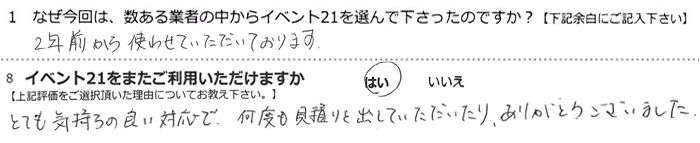 1 なぜ今回は、数ある業者の中からイベント21を選んで下さったのですか？【下記余白にご記入下さい】
2年前から使わせていただいております.
8 イベント21をまたご利用いただけますか はい いいえ
【上記評価をご選択頂いた理由についてお教え下さい。】
とても気持ちの良い対応で、何度も見積りを出していただいたり、ありがとうございました.